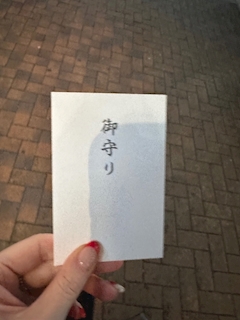 御守り